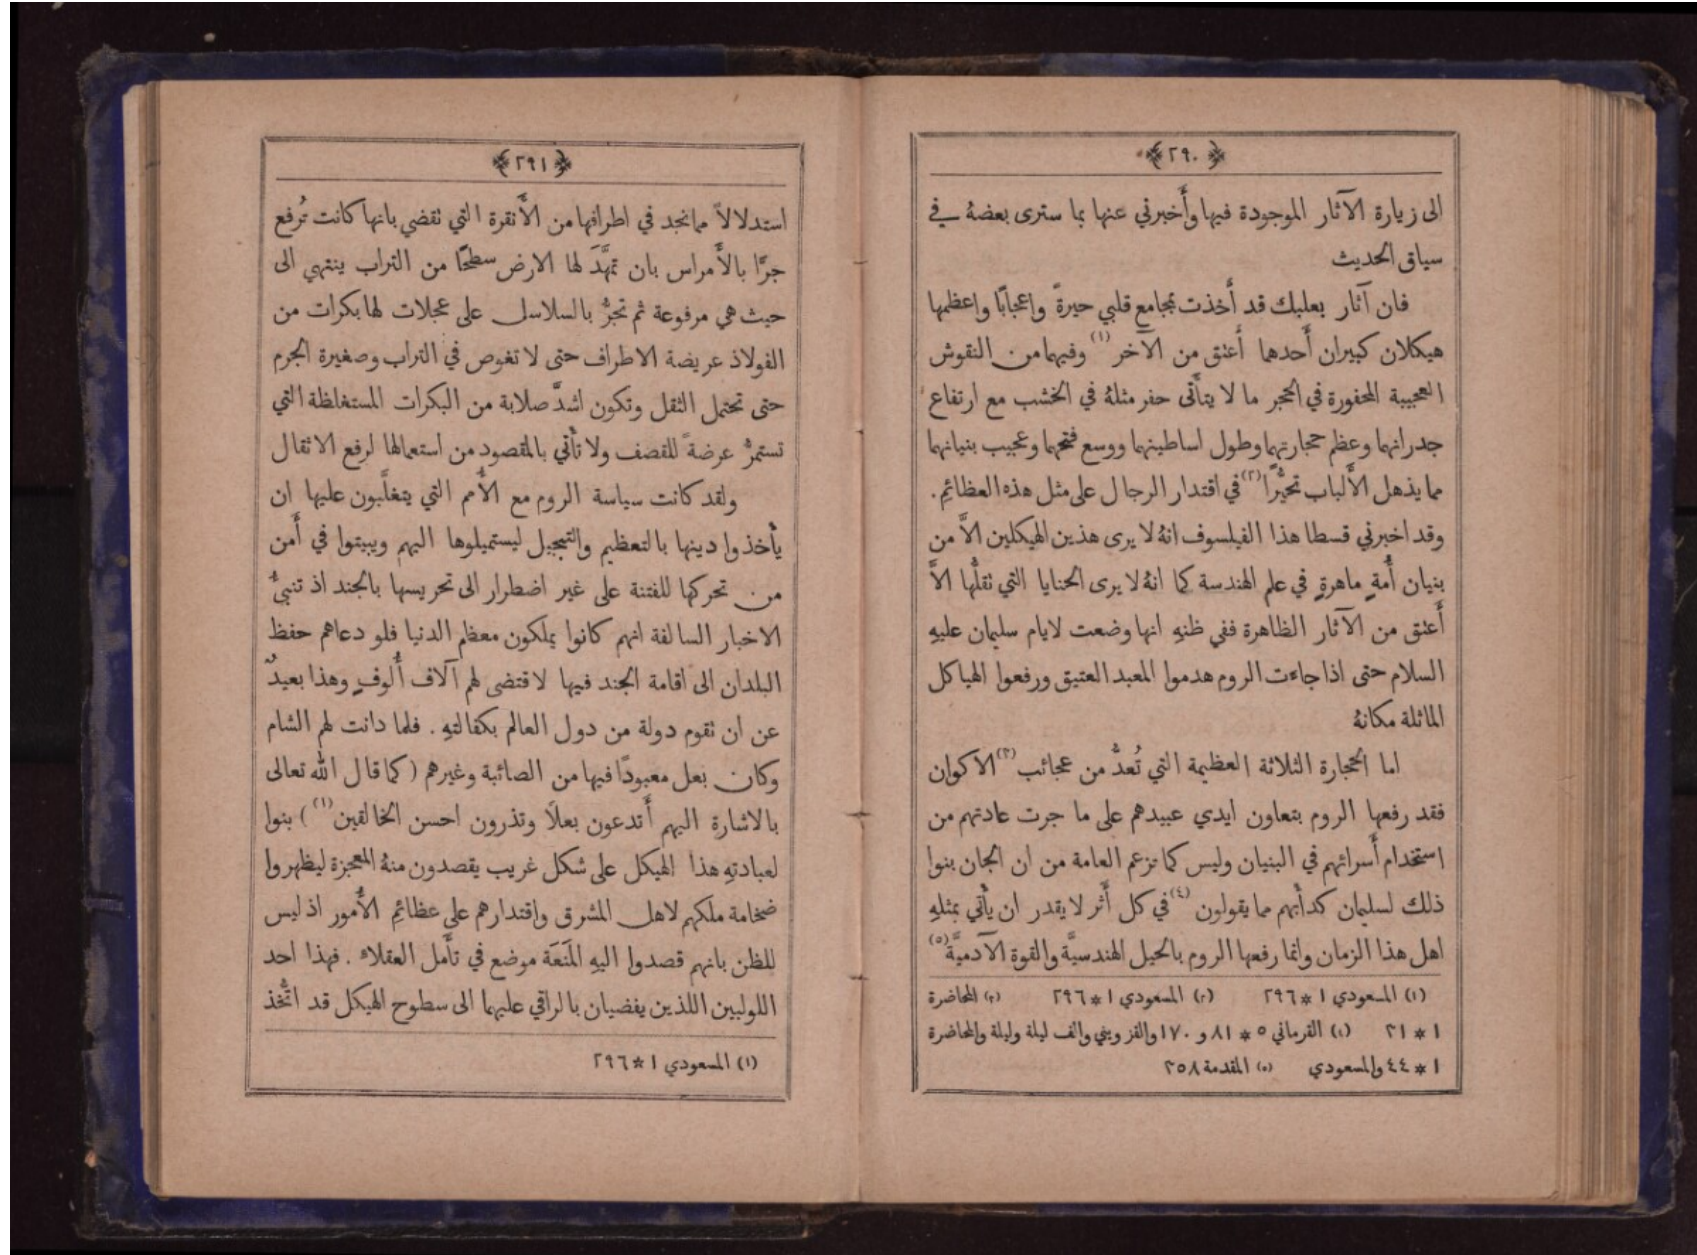 ﴿٢٩٠﴾
الى زيارة الآثار الموجودة فيها وأَخبرني عنها بما سترى بعضهُ في
سياق الحديث
فان آثار بعلبك قد أَخذت بمجامع قلبي حيرةً واعجابًا واعظمها
هيكلان كبيران أَحدهما أَعنق من الآخر (١) وفيهما من النقوش
العجيبة المحفورة في الحجر ما لا يتأَتى حفر مثلهُ في الخشب مع ارتفاع
جدرانهما وعظم حجارتهما وطول اساطينهما ووسع فتحهما وعجيب بنيانهما
مما يذهل الأَلباب تحيُّرًا (٢) في اقتدار الرجال على مثل هذه العظائمِ.
وقد اخبرني قسطا هذا الفيلسوف انهُ لا يرى هذين الهيكلين الاَّ من
بنيان أُمةٍ ماهرةٍ في علم الهندسة كما انهُ لا يرى الحنايا التي نقلُّها الاَّ
أَعنق من الآثار الظاهرة ففي ظنهِ انها وضعت لايام سليمان عليهِ
السلام حتى اذا جاءت الروم هدموا المعبد العتيق ورفعوا الهياكل
الماثلة مكانهُ
اما الحجارة الثلاثة العظيمة التي تُعدُّ من عجائب (٣) الاكوان
فقد رفعها الروم بتعاون ايدي عبيدهم على ما جرت عادتهم من
استخدام أَسرائهم في البنيان وليس كما تزعم العامة من ان الجان بنوا
ذلك لسليمان كدأبهم مما يقولون (٤) في كل أَثر لا يقدر ان يأتي بمثلهِ
اهل هذا الزمان وانما رفعها الروم بالحيل الهندسيَّة والقوة الآدميَّة (٥)
(١) المسعودي ١ * ٢٩٦ (٢) المسعودي ١ * ٢٩٦ (٣) المحاضرة
١ * ٢١ (٤) القرماني ٥ * ٨١ و ١٧٠ والقزويني والف ليلة وليلة والمحاضرة
١ * ٤٤ والمسعودي (٥) المقدمة ٢٥٨
﴿٢٩١﴾
استدلالاً مما نجد في اطرافها من الأَنقرة التي نقضي بانها كانت تُرفع
جرًّا بالأَمراس بان تمهَّدَ لها الارض سطحًا من التراب ينتهي الى
حيث هي مرفوعة ثم تجرُّ بالسلاسل على عجلات لها بكرات من
الفولاذ عريضة الاطراف حتى لا تغوص في التراب وصغيرة الجرم
حتى تحتمل الثقل وتكون اشدَّ صلابة من البكرات المستغلظة التي
تستمرُّ عرضةً للقصف ولا تأتي بالمقصود من استعمالها لرفع الاثقال
ولقد كانت سياسة الروم مع الأُمم التي يتغلَّبون عليها ان
يأخذوا دينها بالتعظيم والتبجيل ليستميلوها اليهم ويبيتوا في أَمن
من تحركها للفتنة على غير اضطرار الى تحريسها بالجند اذ تنبيُّ
الاخبار السالفة انهم كانوا يملكون معظم الدنيا فلو دعاهم حفظ
البلدان الى اقامة الجند فيها لاقتضى لهم آلاف أُلوفٍ وهذا بعيدٌ
عن ان نقوم دولة من دول العالم بكفالتهِ . فلما دانت لهم الشام
وكان بعل معبودًا فيها من الصائبة وغيرهم (كما قال الله تعالى
بالاشارة اليهم أَتدعون بعلاً وتذرون احسن الخالقين (١) ) بنوا
لعبادتهِ هذا الهيكل على شكل غريب يقصدون منهُ المعجزة ليظهروا
ضخامة ملكهم لاهل المشرق واقتدارهم على عظائمِ الأُمور اذ ليس
للظن بانهم قصدوا اليهِ المَنَعَة موضع في تأَمل العقلاء . فهذا احد
اللولبين اللذين يفضيان بالراقي عليهما الى سطوح الهيكل قد اتُّخذ
(١) المسعودي ١ * ٢٩٦